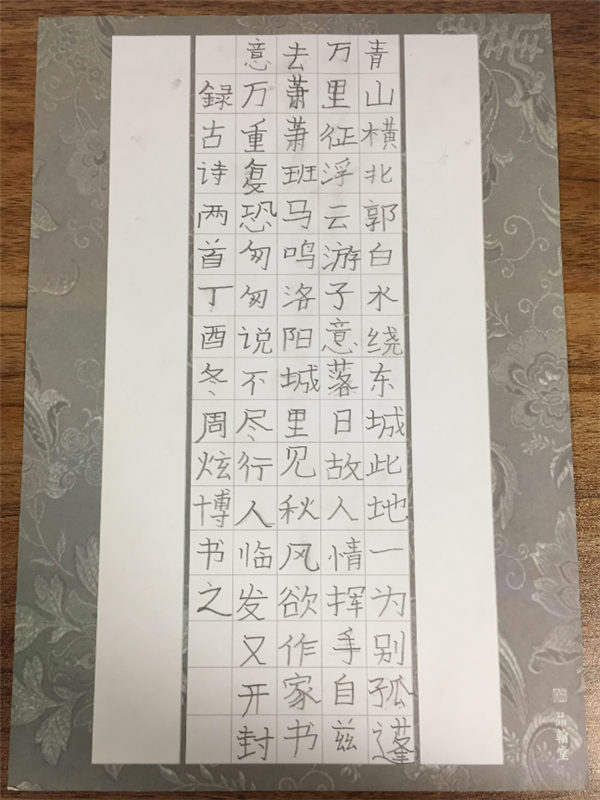 青山横北郭白水绕东城此地一为别孤蓬
万里征浮云游子意落日故人情挥手自兹
去萧萧班马鸣洛阳城里见秋风欲作家书
意万重复恐匆匆说不尽行人临发又开封
録古诗两首丁酉冬周炫博书之
品翰堂